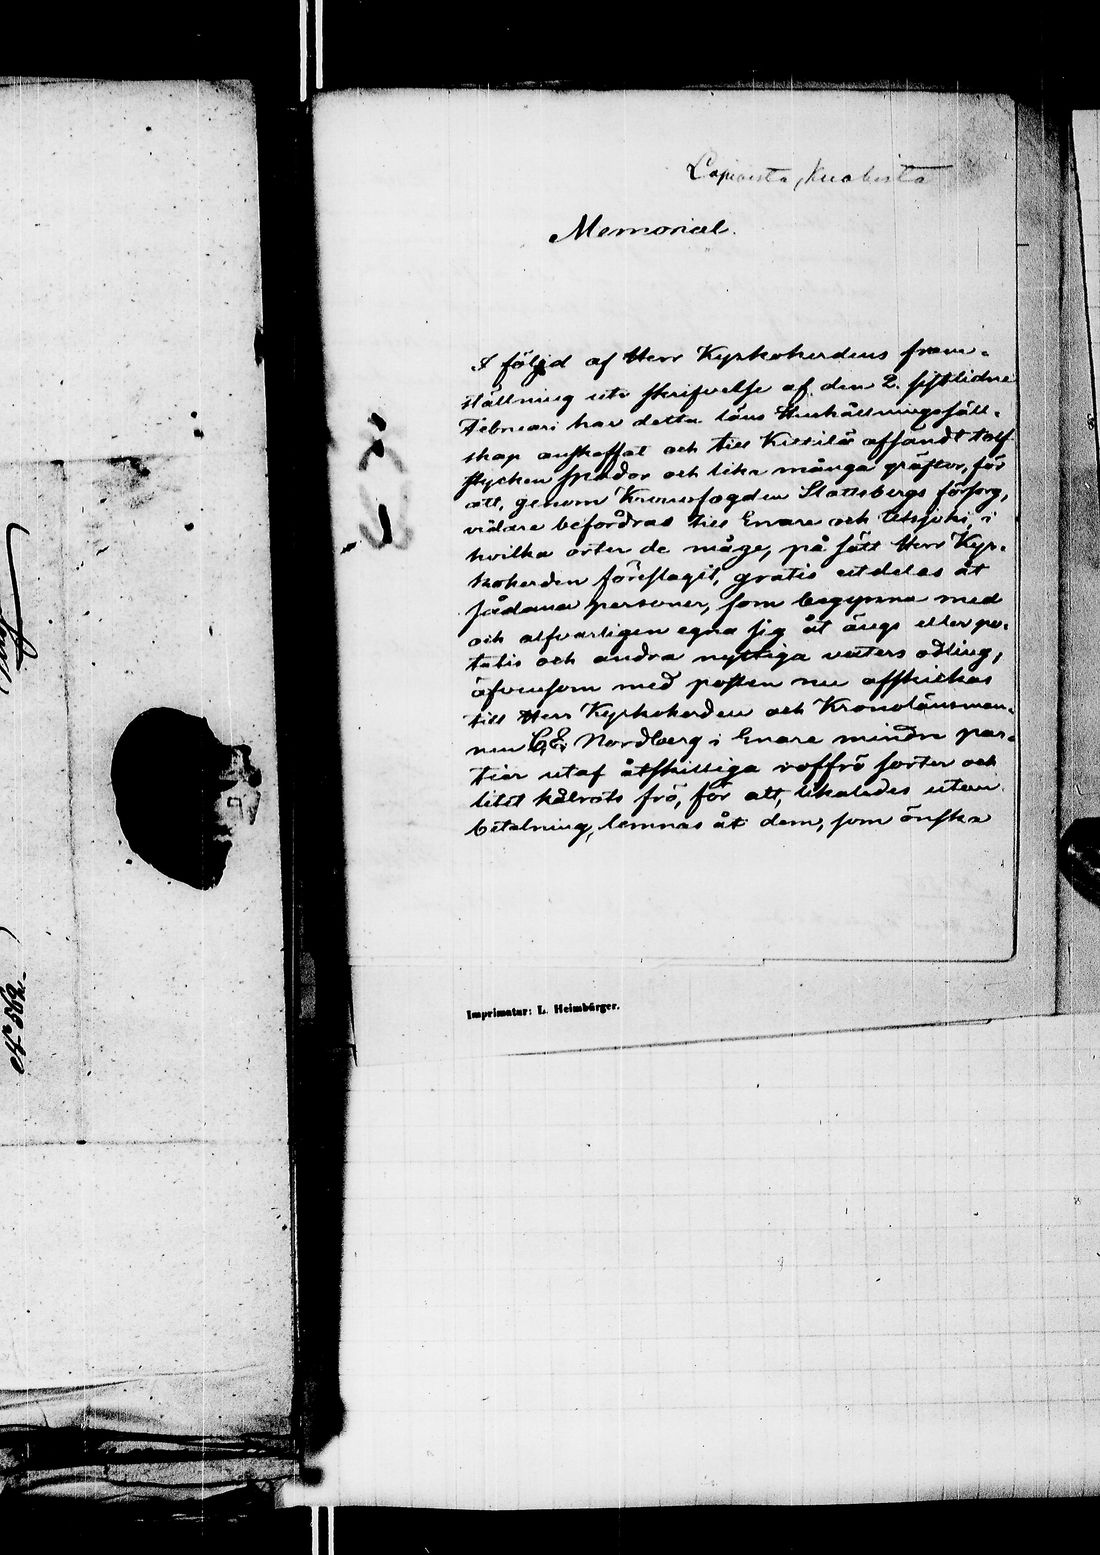 Memorial.
I följd af Herr Kyrkoherdens fram-
ställning uti skrifvelse af den 2. sistlidne
Februari har detta läns Hushållningssäll-
skap anskaffat och till Kittilä afsändt tolf
stycken spador och lika många gräftor, för
att, genom Kronofogden Slattsbergs försorg,
vidare befordras till Enare och Utsjoki, i
hvilka orter de måge, på sätt Herr Kyr-
koherden föreslagit, gratis utdelas åt
sådana personer, som begynna med
och alfvarligen egna sig åt ängs eller po-
tatis och andra nyttiga växters odling,
äfvensom med posten nu afskickas
till Herr Kyrkoherden och Kronolänsman-
nen C.E. Nordberg i Enare mindre par-
tier utaf åtskilliga roffrö sorter och
litet kålrots frö, för att, likaledes utan
betalning, lemnas åt dem, som önska
Imprimatur: L. Heimbürger.
No 562.